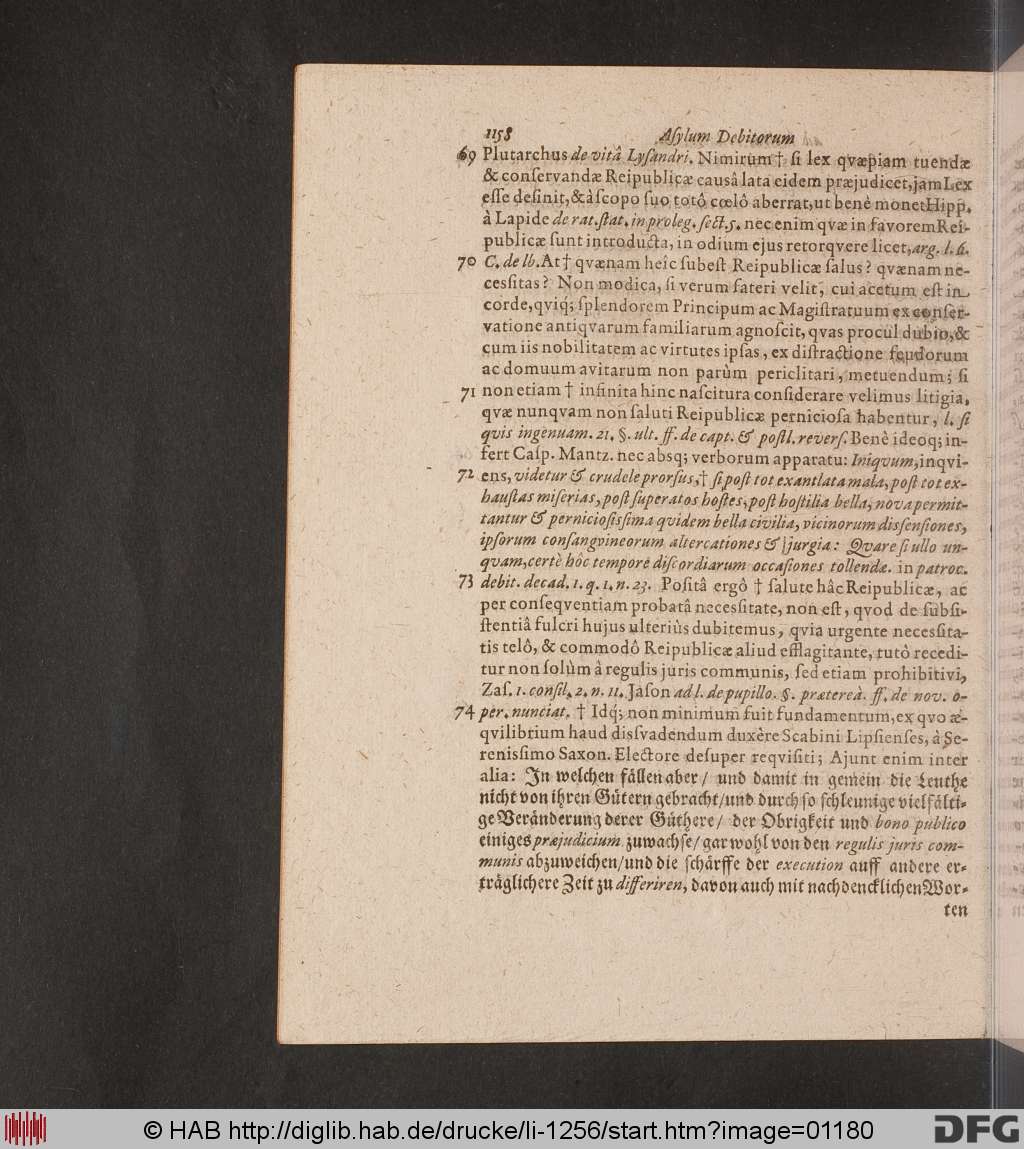 1158 Aſylum Debitorum
69 Plutarchus de vitâ Lyſandri. Nimirum † ſi lex qvæpiam tuendæ
& conſervandæ Reipublicæ causâ lata eidem præjudicet, jam Lex
eſſe deſinit, & à ſcopo ſuo totô cœlô aberrat, ut benè monet Hipp.
à Lapide de rat. ſtat. in proleg. ſect. 5. nec enim qvæ in favorem Rei-
publicæ ſunt introducta, in odium ejus retorqvere licet, arg. l. 6.
70 C. de lb. At † qvænam heîc ſubeſt Reipublicæ ſalus? qvænam ne-
ceſſitas? Non modica, ſi verum fateri velit, cui acetum eſt in
corde, qviq́; ſplendorem Principum ac Magiſtratuum ex conſer-
vatione antiqvarum familiarum agnoſcit, qvas procul dubio, &
cum iis nobilitatem ac virtutes ipſas, ex diſtractione feudorum
ac domuum avitarum non parùm periclitari, metuendum; ſi
71 non etiam † infinita hinc naſcitura conſiderare velimus litigia,
qvæ nunqvam non ſaluti Reipublicæ pernicioſa habentur, l. ſi
qvis ingenuam. 21. §. ult. ff. de capt. & poſtl. reverſ. Benè ideoq; in-
fert Caſp. Mantz. nec absq; verborum apparatu: Iniqvum, inqvi-
72 ens, videtur & crudele prorſus, † ſi poſt tot exantlata mala, poſt tot ex-
hauſtas miſerias, poſt ſuperatos hoſtes, poſt hoſtilia bella, nova permit-
tantur & pernicioſiſſima qvidem bella civilia, vicinorum diſſenſiones,
ipſorum conſangvineorum altercationes & jurgia: Qvare ſi ullo un-
qvam, certè hôc tempore diſcordiarum occaſiones tollendæ. in patroc.
73 debit. decad. 1. q. 1. n. 23. Poſitâ ergô † ſalute hâc Reipublicæ, ac
per conſeqventiam probatâ neceſſitate, non eſt, qvod de ſubſi-
ſtentiâ fulcri hujus ulteriùs dubitemus, qvia urgente neceſſita-
tis telô, & commodô Reipublicæ aliud efflagitante, tutò recedi-
tur non ſolùm à regulis juris communis, ſed etiam prohibitivi,
Zaſ. 1. conſil. 2. n. 11. Jaſon ad l. de pupillo. §. prætereà. ff. de nov. o-
74 per. nunciat. † Idq́; non minimum fuit fundamentum, ex qvo æ-
qvilibrium haud diſſvadendum duxère Scabini Lipſienſes, à Se-
reniſſimo Saxon. Electore deſuper reqviſiti; Ajunt enim inter
alia: In welchen fällen aber / und damit in gemein die Leuthe
nicht von ihren Gütern gebracht / und durch ſo ſchleunige vielfälti-
ge Veränderung derer Güthere / der Obrigkeit und bono publico
einiges præjudicium zuwachſe / gar wohl von den regulis juris com-
munis abzuweichen / und die ſchärffe der execution auff andere er-
träglichere Zeit zu differiren, davon auch mit nachdencklichen Wor-
ten
© HAB http://diglib.hab.de/drucke/li-1256/start.htm?image=01180
DFG